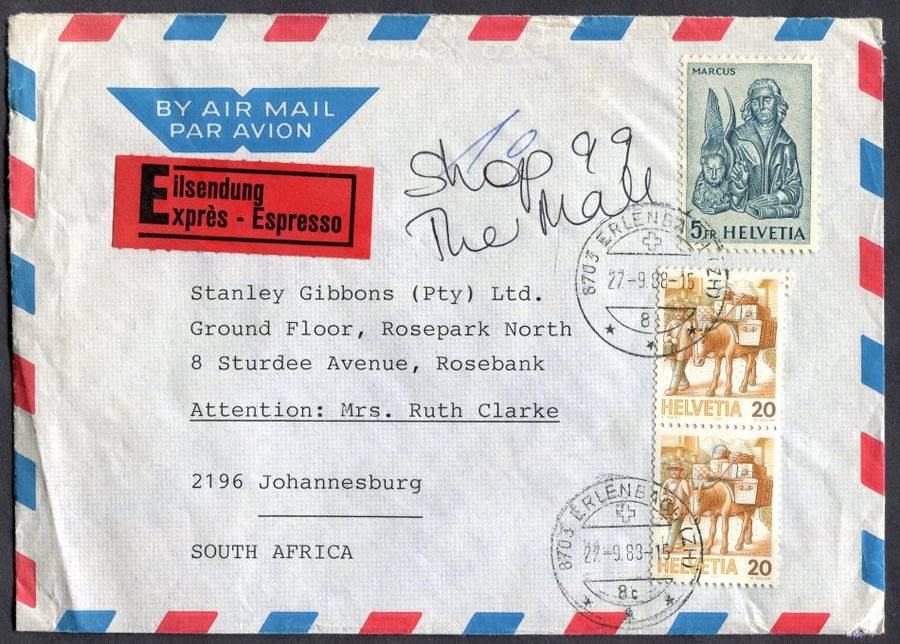 BY AIR MAIL
PAR AVION
Eilsendung
Exprès - Espresso
To
Shop 99
The Mall
MARCUS
5FR HELVETIA
8703 ERLENBACH (ZH)
27.-9.88-15
8c
Stanley Gibbons (Pty) Ltd.
Ground Floor, Rosepark North
8 Sturdee Avenue, Rosebank
Attention: Mrs. Ruth Clarke
2196 Johannesburg
SOUTH AFRICA
HELVETIA 20
HELVETIA 20
8703 ERLENBACH (ZH)
27.-9.88-15
8c